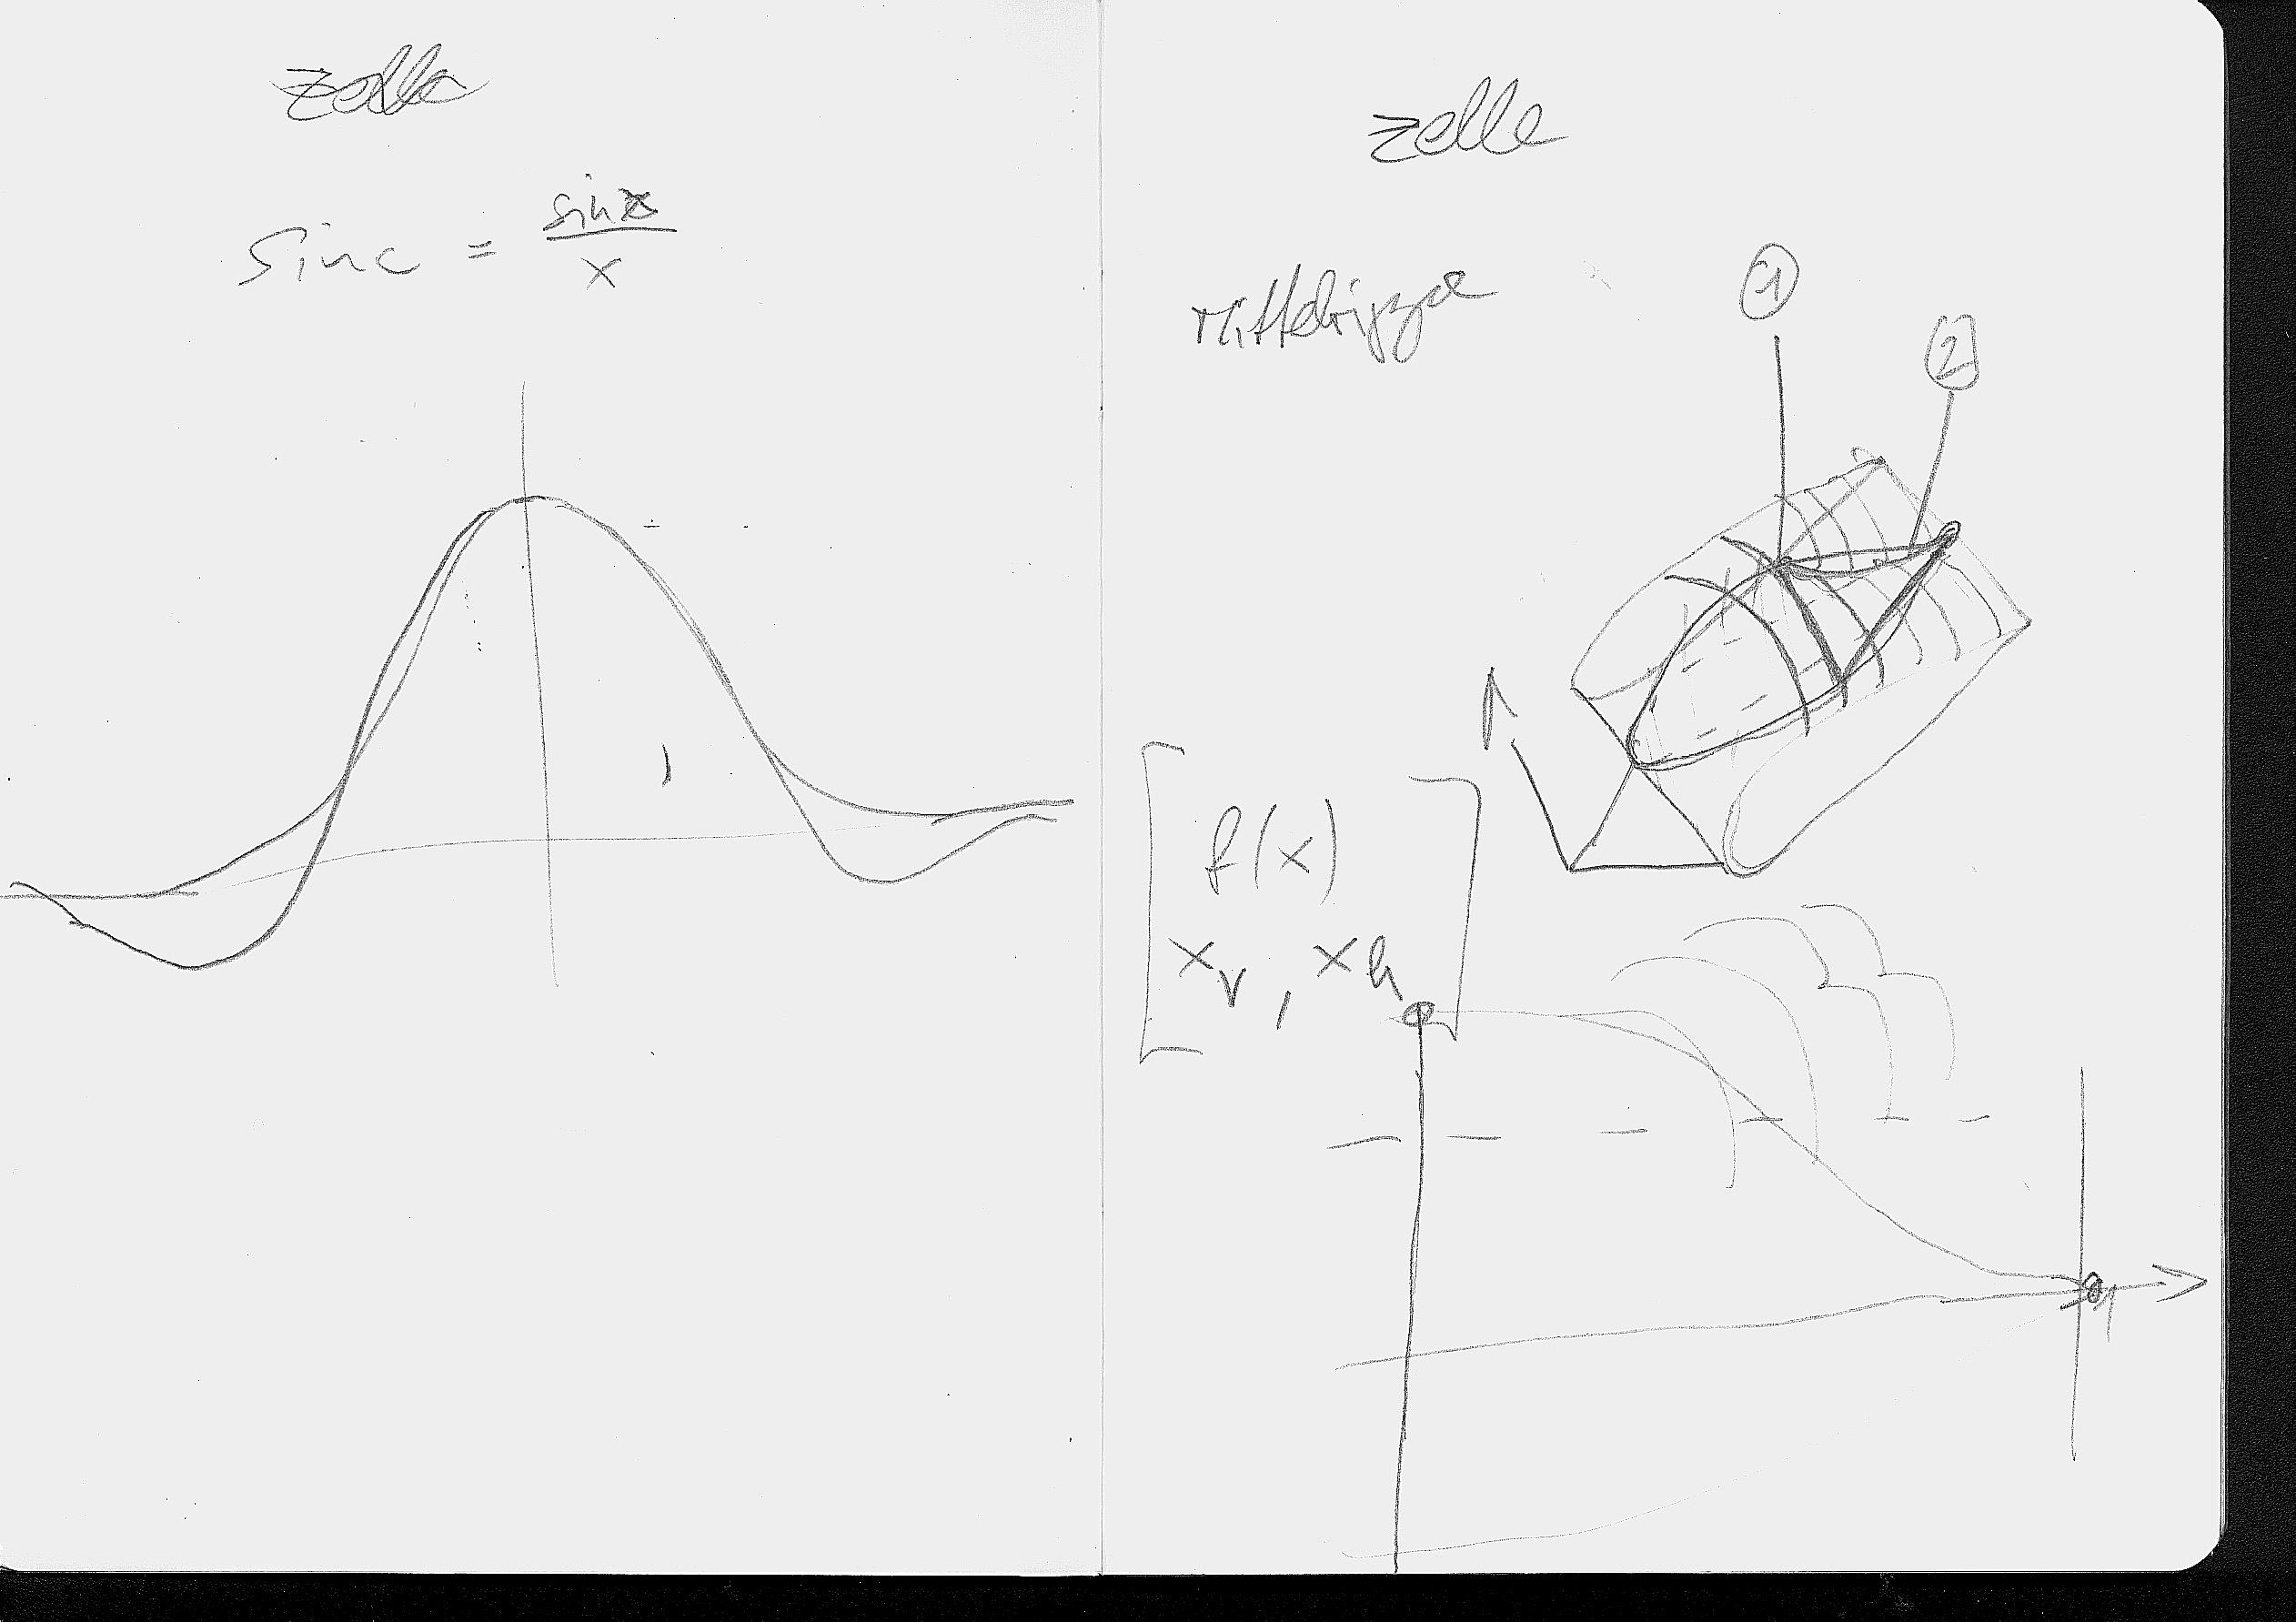 Zelle
sinc = sin x / x
Zelle
Mittelrippe
1
2
f(x)
x_v , x_h